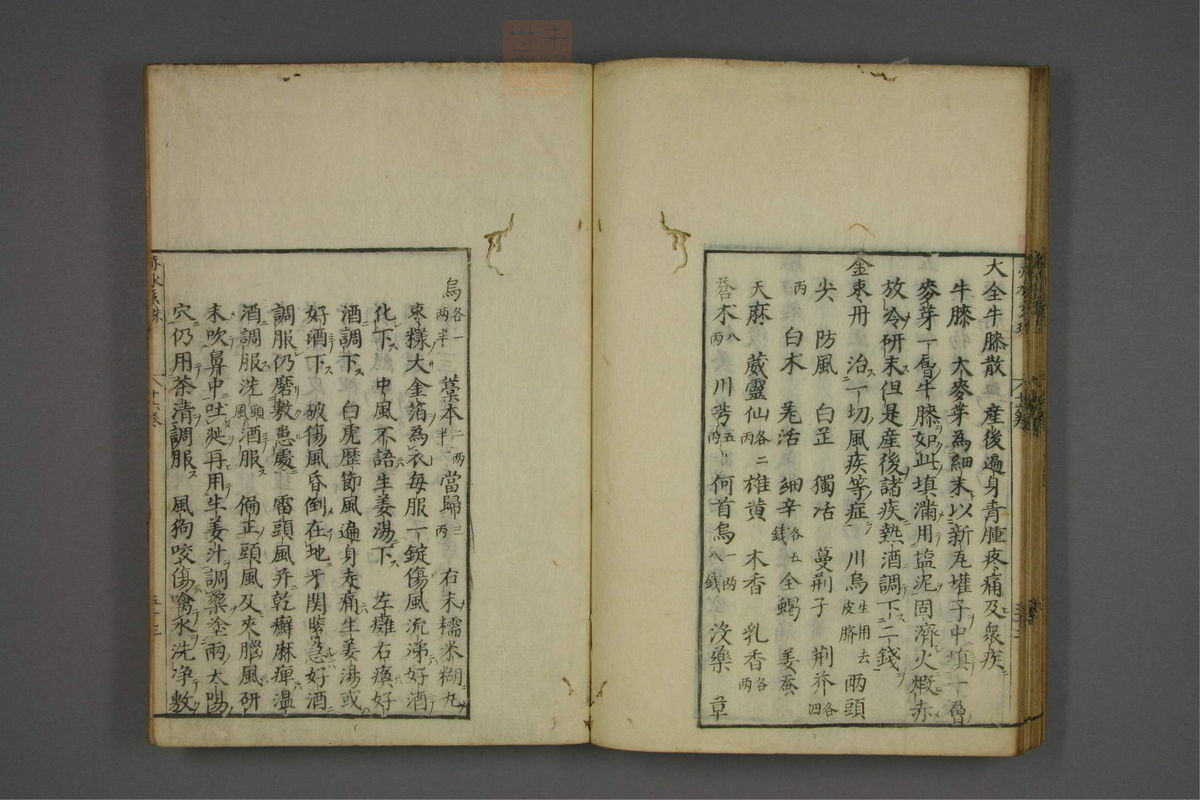 大全牛膝散 産後遍身青腫疼痛及衆疾
牛膝 大麥芽為細末以新瓦堽子中填一層
麥芽一層牛膝如此填滿用塩泥固濟火煆赤
放冷研末但是産後諸疾熱酒調下二錢
金枣丹 治一切風疾等症 川烏生用去皮臍 兩頭
尖 防風 白芷 獨活 蔓荊子 荊芥各四
丙 白木 羌活 細辛各五錢 全蝎 姜蚕
天麻 葳靈仙各二丙 雄黄 木香 乳香各丙
蒼术八丙 川芎五丙 何首烏一兩八錢 没藥 草
烏各一两半 藁本二两半 當歸三丙 右末糯米糊丸
枣㨾大金箔為衣毎服一錠傷風流涕好酒
化下 中風不語生姜湯下 左癱右瘓好
酒調下 白虎歴節風遍身走痛生姜湯或
好酒下 破傷風昏倒在地牙関緊急好酒
調服仍磨敷患處 雷頭風并乾癬麻痺温
酒調服洗頭風酒服 偏正頭風及夾腦風研
末吹鼻中吐涎再用生姜汁調藥塗兩太陽
穴仍用茶清調服 風狗咬傷噙水洗净敷
十六巻
五十三